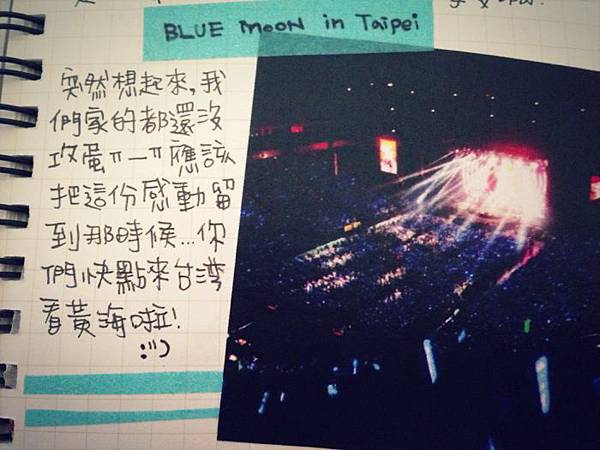 BLUE MOON in Taipei
突然想起來,我
們家的都還沒
攻蛋ㅠㅡㅠ應該
把這份感動留
到那時候...你
們快點來台灣
看黃海啦!
:")